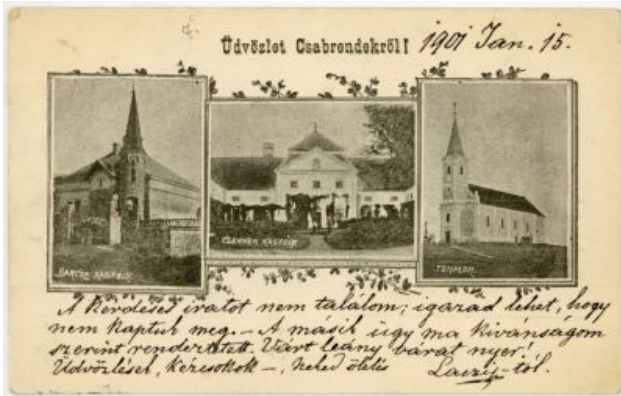 Üdvözlet Csabrendekről! 1901 Jan. 15.
KASTÉLY
KASTÉLY
TEMPLOM
A kérdéses iratot nem találom; igazad lehet, hogy
nem kaptuk meg. – A másik ügy ma kivánságom
szerint rendeztetett. Várt leány várat nyer!
Üdvözlések, kézcsókok –, Neked ölelés